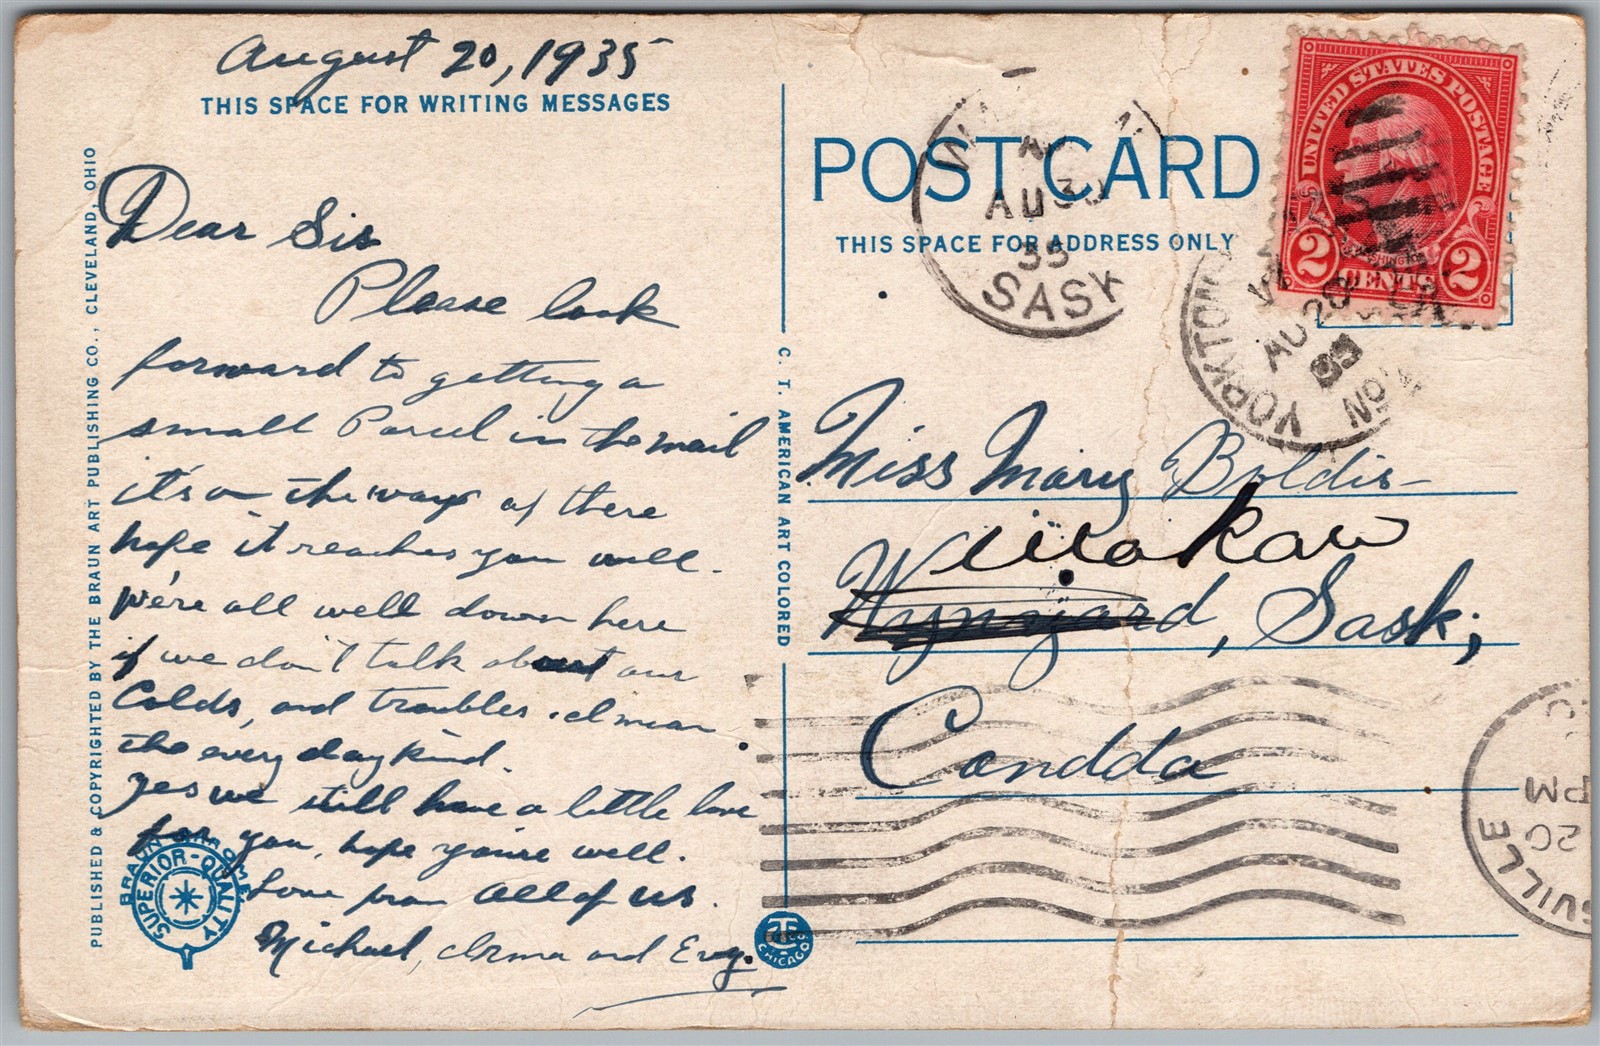 August 20, 1935
THIS SPACE FOR WRITING MESSAGES
PUBLISHED & COPYRIGHTED BY THE BRAUN ART PUBLISHING CO., CLEVELAND, OHIO
Dear Sis
Please look
forward to getting a
small Parcel in the mail
it's on the way of there
hope it reaches you well.
We're all well down here
if we don't talk about our
Colds, and troubles. I mean
the every day kind.
Yes we still have a little love
for you, hope you're well.
Love from All of us.
Michael, Irma and Evg.
SUPERIOR-QUALITY
C. T. AMERICAN ART COLORED
CHICAGO
POST CARD
THIS SPACE FOR ADDRESS ONLY
UNITED STATES POSTAGE
2 CENTS 2
AU 30
35
SASK
YORKTON
AU 28
35
Miss Mary Boldis
Wynyard, Sask;
Candda
PM
20
VILLE